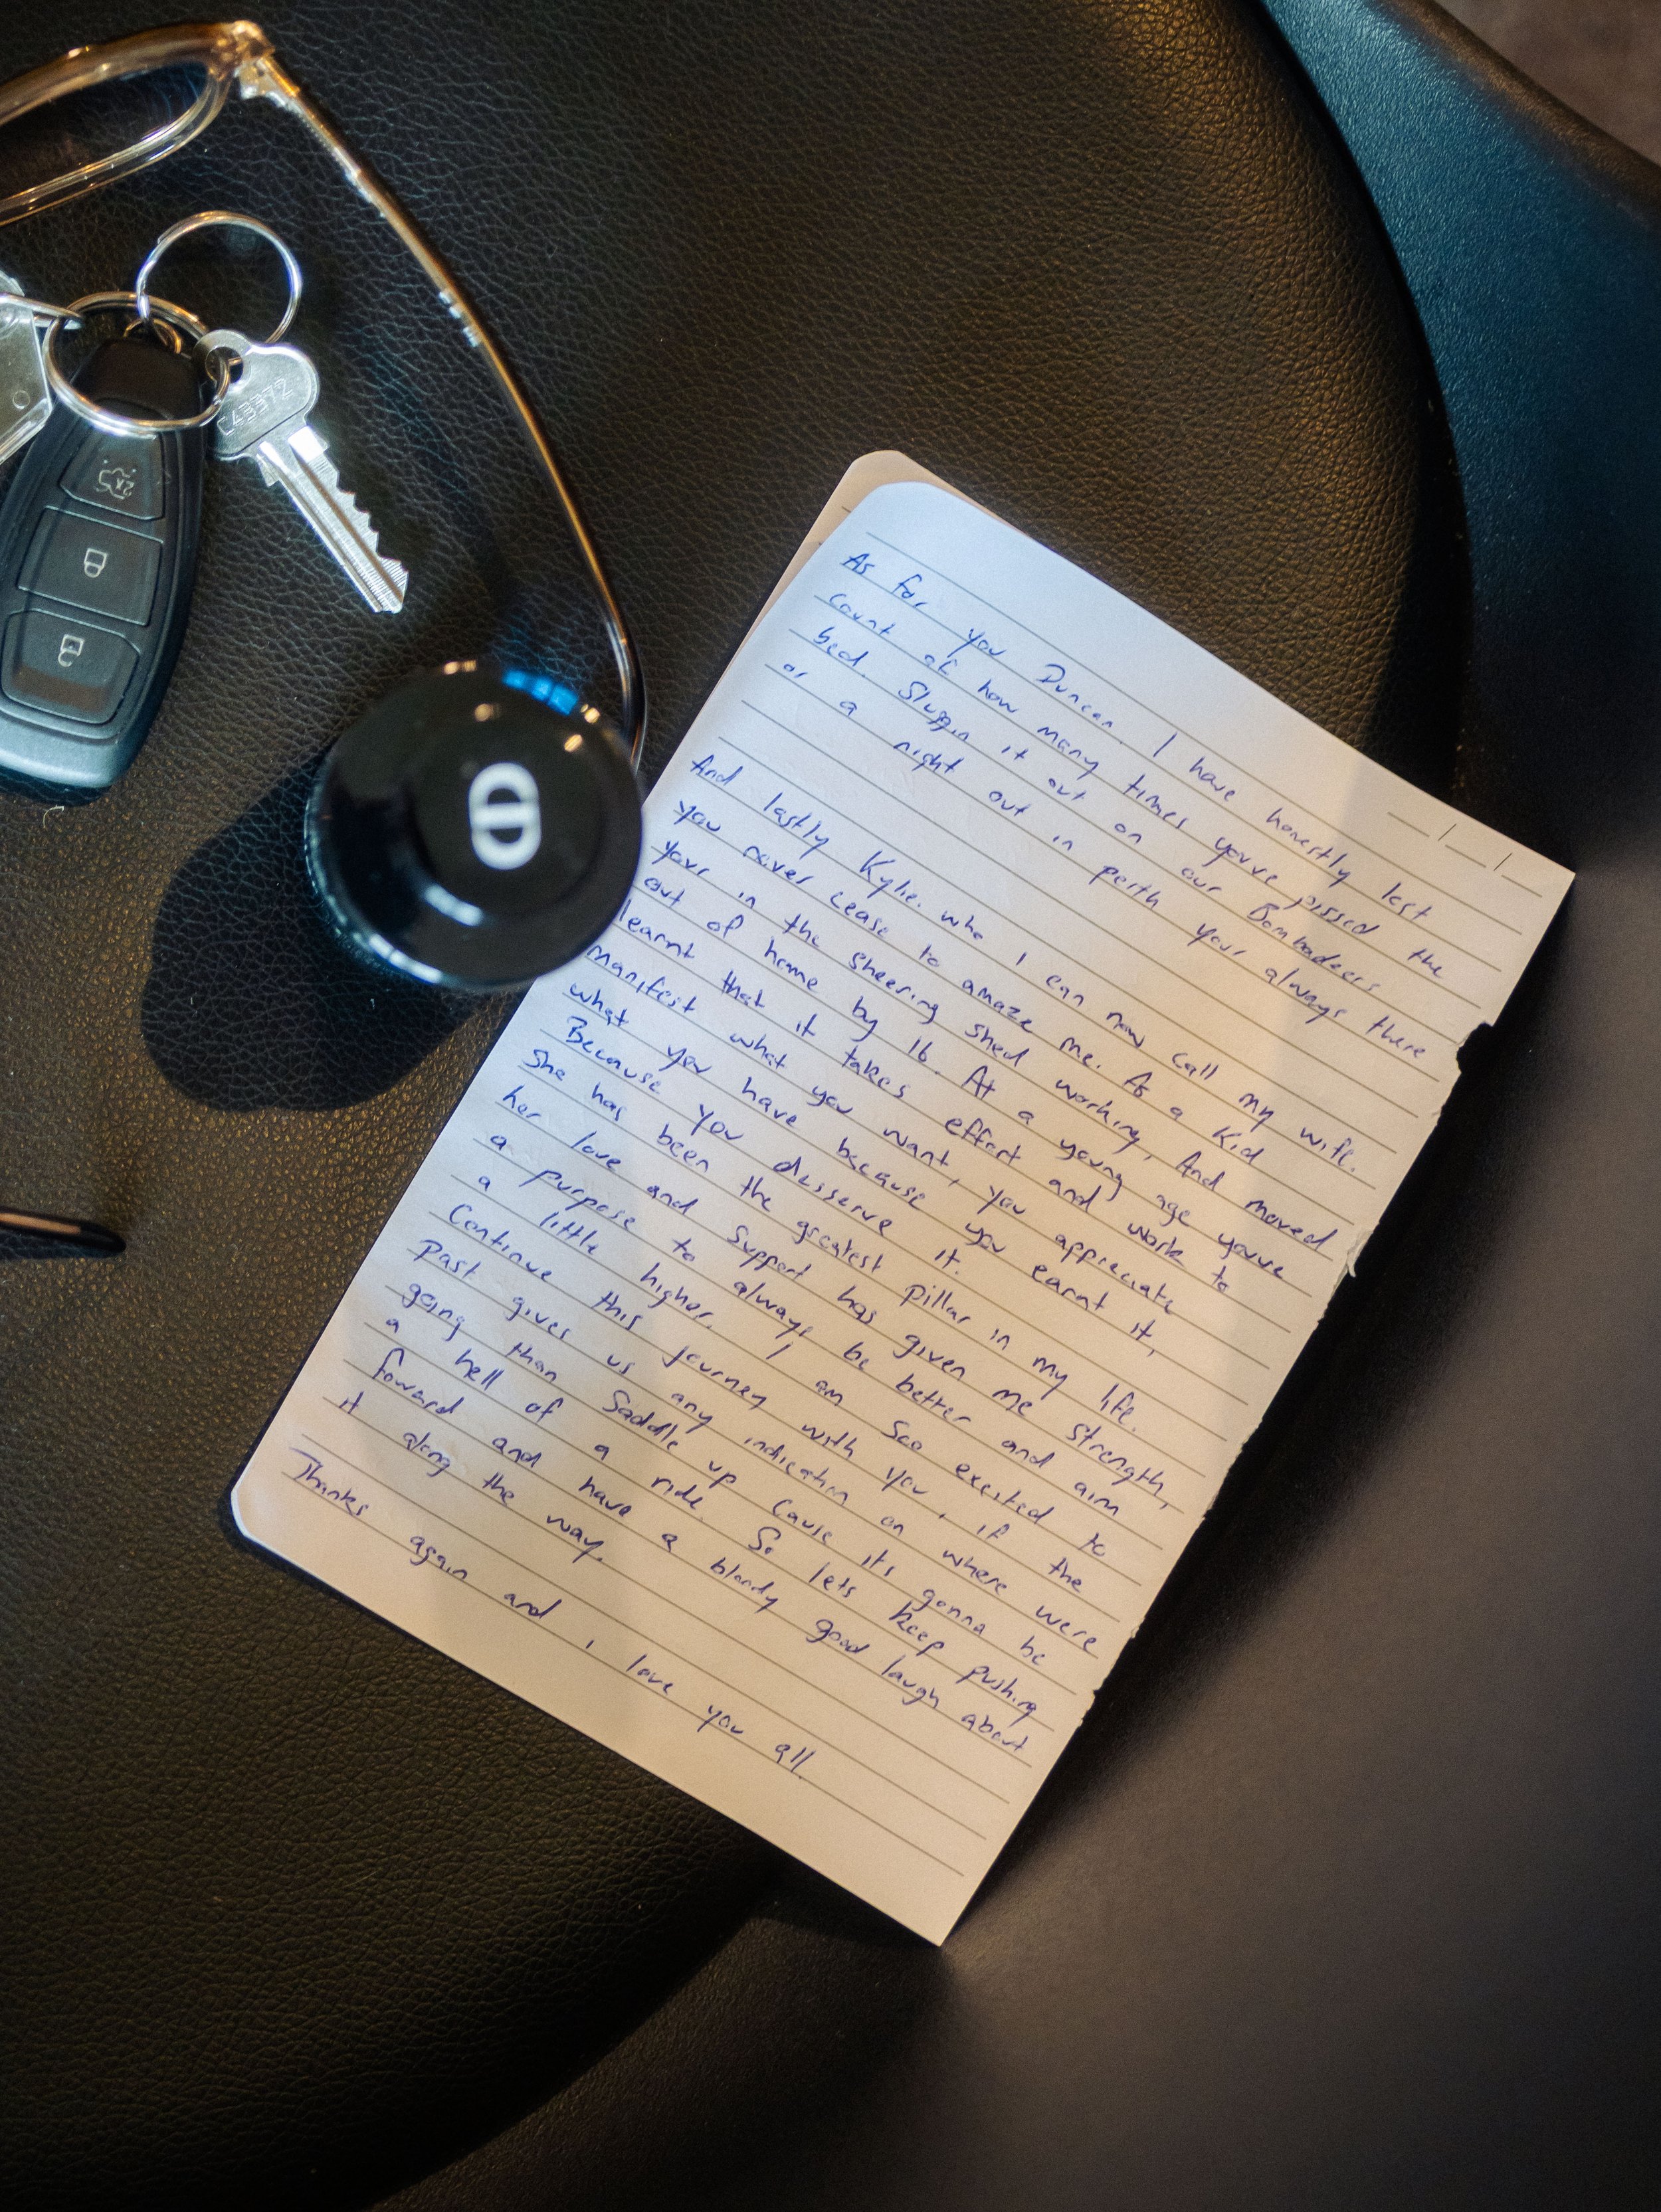 __/__/__
As for you Duncan. I have honestly lost
count of how many times youve pissed the
bed. Sluggin it out on our Bombadeers
or a night out in perth your always there
And lastly Kylie. who I can now call my wife.
you never cease to amaze me. As a Kid
your in the sheering shed working, And moved
out of home by 16. At a young age youve
learnt that it takes effort and work to
manifest what you want, you appreciate
what you have because you earnt it,
Because you desserve it.
She has been the greatest pillar in my life.
her love and support has given me strength,
a purpose to always be better and aim
a little higher. I am Soo excited to
Continue this journey with you, if the
past gives us any indication on where were
going than Saddle up cause its gonna be
a hell of a ride. So lets keep pushing
foward and have a bloody good laugh about
it along the way.
Thanks again and, I love you all.
2x